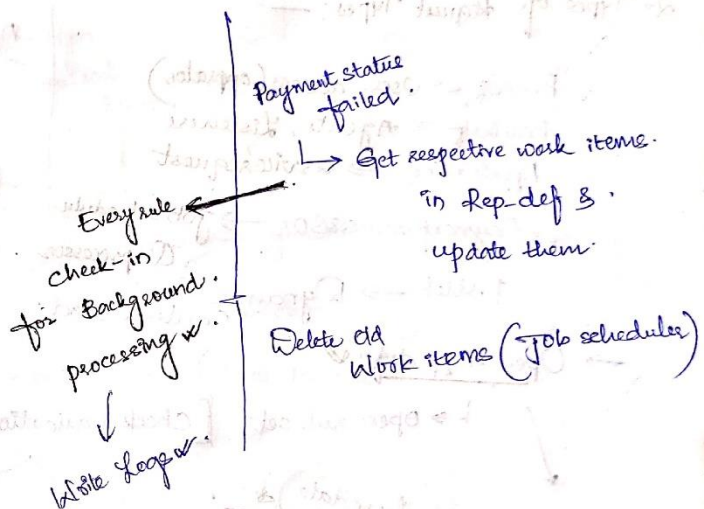 Payment status
failed.
Get respective work items.
in Rep-def &.
update them.
Every rule
check-in
for Background.
processing
Write Logs
Delete old
Work items (Job scheduler)